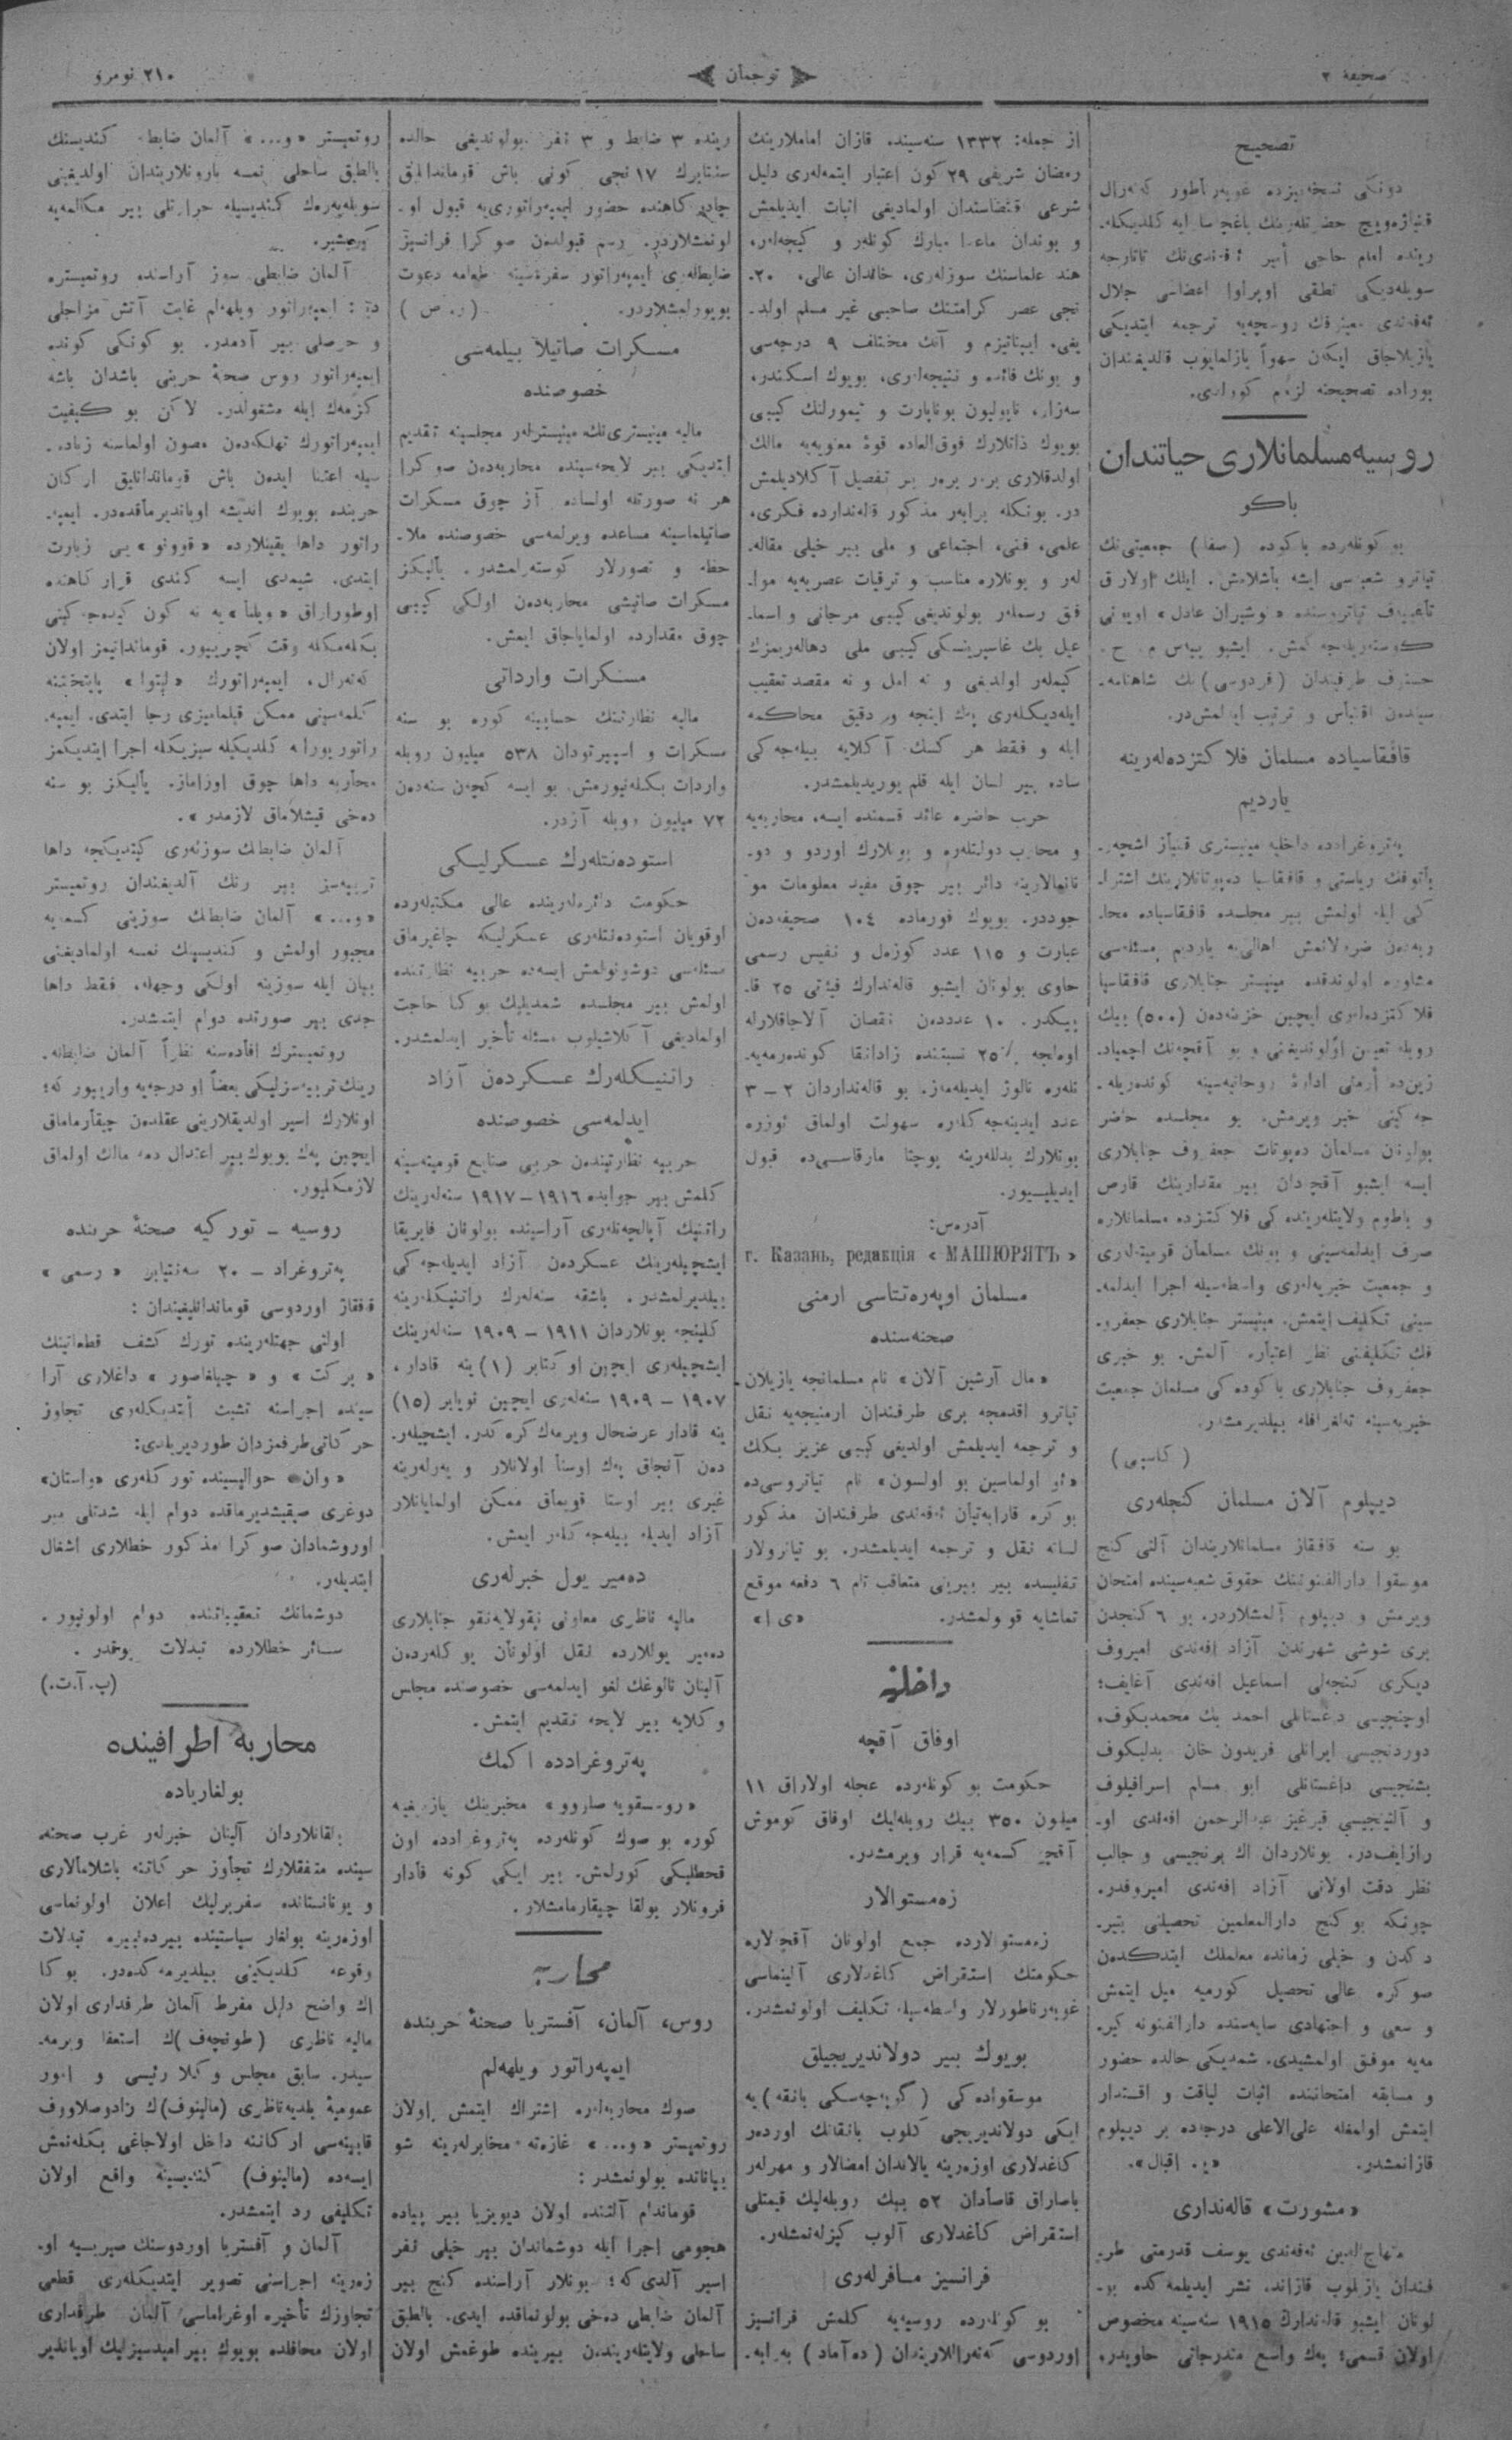 صحیفه ۲
ترجمان
۲۱۰ نومرو
تصحیح
دونکی نسخه‌میزده غوبه‌رناطور که‌نه‌رال
سویله‌دیکی نطقی اوپراوا اعضاسی جلال
یازیلاجاق ایکن سهواً یازلمایوب قالدیغندان
بوراده تصحیحنه لزوم کورلدی.
روسیه مسلمانلاری حیاتندان
باکو
بو کونلرده باکوده (صفا) جمعیتی‌نك
تیاترو شعبه‌سی ایشه باشلامش. ایلك اولارق
تأغییه‌ف تیاتروسنده «نوشیران عادل» اویونی
قافقاسیاده مسلمان فلاکتزده‌له‌رینه
یاردیم
پەتروغرادده داخلیه مینیستری قنیاز اشچه‌ر-
باتوفك ریاستی و قافقاسیا ده‌پوتاتلارینك اشترا-
کی ایله اولمش بیر مجلسده قافقاسیاده محا-
ربه‌دن ضررلانمش اهالی‌یه یاردیم مسئله‌سی
مشاوره اولوندقده مینیستر جنابلاری قافقاسیا
فلاکتزده‌لری ایچین خزینه‌دن (۵۰۰) بیك
جه‌کینی خبر ویرمش. بو مجلسده حاضر
بولونان مسلمان ده‌پوتات جعفروف جنابلاری
ایسه ایشبو آقچه‌دان بیر مقدارینك قارص
و باطوم ولایتلرینده کی فلاکتزده مسلمانلاره
صرف ایدلمه‌سینی و بونك مسلمان قومیته‌لری
و جمعیت خیریه‌لری واسطه‌سیله اجرا ایدلمه-
سینی تکلیف ایتمش. مینیستر جنابلاری جعفرو-
فك تکلیفنی نظر اعتباره آلمش. بو خبری
جعفروف جنابلاری باکوده کی مسلمان جمعیت
خیریه‌سینه تەلغرافله بیلدیرمشدر.
(کاسپی)
دیپلوم آلان مسلمان کنجله‌ری
بو سنه قافقاز مسلمانلاریندان آلتی کنج
موسقوا دارالفنونینك حقوق شعبه‌سینده امتحان
ویرمش و دیپلوم آلمشلاردر. بو ۶ کنجدن
بری شوشی شهرندن آزاد افه‌ندی امیروف
دیکری کنجه‌لی اسماعیل افه‌ندی آغایف؛
اوچنجیسی داغستانلی احمد بك محمدبکوف،
دوردنجیسی ایرانلی فریدون خان بدلبکوف
بشنجیسی داغستانلی ابو مسلم اسرافیلوف
و آلتینجیسی قیرغیز عبدالرحمن افه‌ندی او-
رازایف‌در. بونلاردان اك برنجیسی و جالب
نظر دقت اولانی آزاد افه‌ندی امیروفدر.
چونکه بو کنج دارالمعلمین تحصیلنی بتیر-
دکدن و خیلی زمانده معلملك ایتدکدەن
صوکره عالی تحصیل کورمیه میل ایتمش
و سعی و اجتهادی سایه‌سنده دارالفنونه کیر-
مه‌یه موفق اولمشیدی. شمدیکی حالده حضور
و مسابقه امتحاننده اثبات لیاقت و اقتدار
ایتمش اولمغله علی‌الاعلی درجه‌ده بر دیپلوم
قازانمشدر. «ی. اقبال».
«مشورت» قاله‌نداری
منهاج‌الدین ئه‌فه‌ندی یوسف قدرمتی طر-
فندان یازیلوب قازاندە نشر ایدیلمه‌کده بو-
لونان ایشبو قاله‌ندارك ۱۹۱۵ سنه‌سینه مخصوص
اولان قسمی؛ پەك واسع مندرجاتی حاویدر.
از جمله: ۱۳۳۲ سنه‌سینده قازان اماملارینك
رمضان شریفی ۲۹ کون اعتبار ایتمه‌له‌ری دلیل
شرعی اقتضاسندان اولمادیغی اثبات ایدیلمش
و بوندان ماعدا مبارك کونلەر و کیجه‌لەر،
هند علماسنك سوزله‌ری، خاقدان عالی، ۲۰-
نجی عصر کرامتنك صاحبی غیر مسلم اولد-
یغی، ایپناتیزم و آنك مختلف ۹ درجه‌سی
و بونك فائده و نتیجه‌لری، بویوك اسکندر،
سه‌زار، ناپولیون بوناپارت و تیمورلنك کیبی
بویوك ذاتلارك فوق‌العاده قوۀ معنویه‌یه مالك
اولدقلاری برر برەر بر تفصیل آکلادیلمش
در. بونکله برابەر مذکور قاله‌ندارده فکری،
علمی، فنی، اجتماعی و ملی بیر خیلی مقاله-
لەر و بونلاره مناسب و ترقیات عصریه‌یه موا-
فق رسملەر بولوندیغی کیبی مرجانی و اسما-
عیل بك غاسپرینسکی کیبی ملی دهاله‌ریمزك
کیملەر اولدیغی و نه امل و نه مقصد تعقیب
ایله‌دیکله‌ری پەك اینجه و دقیق محاکمه
ایله و فقط هر کسك آکلایه بیله‌جه‌کی
ساده بیر لسان ایله قلم یوریدیلمشدر.
حرب حاضره عائد قسمنده ایسه، محاربه‌یه
و محارب دولتلره و بونلارك اوردو و دو-
نانمالارینه دائر بیر چوق مفید معلومات مو-
جوددر. بویوك فورماده ۱۰٤ صحیفه‌دن
عبارت و ۱۱۵ عدد کوزەل و نفیس رسمی
حاوی بولونان ایشبو قاله‌ندارك فیئتی ۲۵ قا-
پیکدر. ۱۰ عدددن نقصان آلاجاقلارله
اوه‌لجه ٪۲۵ نسبتنده زاداتقا کونده‌رمه‌یه-
نلەره نالوژ ایدیله‌مه‌ز. بو قاله‌نداردان ۲ – ۳
عدد ایدینه‌جه‌کلەره سهولت اولماق ئوزره
بونلارك بدلله‌رینه پوچتا مارقاسی‌ده قبول
ایدیلیییور.
آدرەس:
г. Казань, редакція «МАШЮРЯТЪ»
مسلمان اوپەره‌تتاسی ارمنی
صحنه‌سنده
«مال آرشین آلان» نام مسلمانجه یازیلان
تیاترو اقدمجه بری طرفندان ارمنیجه‌یه نقل
و ترجمه ایدیلمش اولدیغی کیبی عزیز بکك
«او اولماسین بو اولسون» نام تیاتروسی‌ده
بو کره قارابه‌تیان ئه‌فه‌ندی طرفندان مذکور
لسانه نقل و ترجمه ایدیلمشدر. بو تیاترولار
تفلیسده بیر بیرینی متعاقب تام ۶ دفعه موقع
تماشایه قویولمشدر. «ی ا»
داخلیه
اوفاق آقچه
حکومت بو کونلەرده عجله اولاراق ۱۱
میلیون ۳۵۰ بیك روبله‌لیك اوفاق کوموش
آقچه کسمه‌یه قرار ویرمشدر.
زەمستوالار
زەمستوالارده جمع اولونان آقچه‌لاره
حکومتك استقراض کاغدلاری آلینماسی
غوبەرناطورلار واسطه‌سیله تکلیف اولونمشدر.
بویوك بیر دولاندیریجیلق
موسقواده کی (گوپه‌چه‌سکی بانقه) یه
ایکی دولاندیریجی کلوب بانقانك اوردەر
کاغدلاری اوزەرینه یالاندان امضالار و مهرلەر
باصاراق قاصادان ۵۲ بیك روبله‌لیك قیمتلی
استقراض کاغدلاری آلوب کیزله‌نمشلەر.
فرانسیز مسافرله‌ری
بو کونلەرده روسیه‌یه کلمش فرانسیز
اوردوسی که‌نه‌راللاریندان (ده‌آماد) به‌رابه-
رینده ۳ ضابط و ۳ نفر بولوندیغی حالده
سنتابرك ۱۷ نجی کونی باش قوماندانلق
چادر کاهنده حضور ایمپەراتوری‌یه قبول او-
لونمشلاردر. رسم قبولدەن صوکرا فرانسیز
ضابطله‌ری ایمپەراتور سفره‌سینه طعامه دعوت
بویورلمشلاردر. (ر. ص)
مسکرات صاتیلا بیلمه‌سی
خصوصنده
مالیه مینیستری‌نك مینیسترلەر مجلسینه تقدیم
ایتدیکی بیر لایحه‌سینده محاربه‌دن صوکرا
هر نه صورتله اولسه‌ده آز چوق مسکرات
صاتیلماسینه مساعده ویرلمه‌سی خصوصنده ملا-
حظه و تصورلار کوستەرلمشدر. یالیکز
مسکرات صاتیشی محاربه‌دن اولکی کیبی
چوق مقدارده اولمایاجاق ایمش.
مسکرات وارداتی
مالیه نظارتینك حسابینه کوره بو سنه
مسکرات و اسپیرتودان ۵۳۸ میلیون روبله
واردات بکله‌نیورمش. بو ایسه کچەن سنه‌دن
۷۲ میلیون روبله آزدر.
استودەنتلەرك عسکرلیکی
حکومت دائره‌له‌رینده عالی مکتبلەرده
اوقویان استودەنتله‌ری عسکرلیکه چاغیرماق
مسئله‌سی دوشونولمش ایسه‌ده حربیه نظارتنده
اولمش بیر مجلسده شمدیلیك بوکا حاجت
اولمادیغی آکلاشیلوب مسئله تأخیر ایدلمشدر.
راتنیکلەرك عسکردەن آزاد
ایدلمه‌سی خصوصنده
حربیه نظارتیندن حربی صنایع قومیته‌سینه
کلمش بیر جوابده ۱۹۱۶ – ۱۹۱۷ سنه‌له‌رینك
راتنیك آپالچه‌نله‌ری آراسینده بولونان فابریقا
ایشچیلەرینك عسکردەن آزاد ایدیله‌جه‌کی
بیلدیرلمشدر. باشقه سنه‌لەرك راتنیکلەرینه
کلینجه بونلاردان ۱۹۱۱ – ۱۹۰۹ سنه‌له‌رینك
ایشچیله‌ری ایچین اوکتابر (۱) ینه قادار،
۱۹۰۷ – ۱۹۰۹ سنه‌له‌ری ایچین نویابر (۱۵)
ینه قادار عرضحال ویرمه‌ك کره‌کدر. ایشچیلەر-
دن آنجاق پەك اوستا اولانلار و یەرله‌رینه
غیری بیر اوستا قویماق ممکن اولمایانلار
آزاد ایدیله بیله‌جه‌کلەر ایمش.
دەمیر یول خبرله‌ری
مالیه ناظری معاونی نیقولایه‌نقو جنابلاری
دەمیر یوللارده نقل اولونان یوکلەردەن
آلینان نالوغك لغو ایدلمه‌سی خصوصنده مجلس
وکلایه بیر لایحه تقدیم ایتمش.
پەتروغرادده اکمك
«روسسقویه صلوو» مخبرینك یازدیغنه
کوره بو صوك کونلەرده پەتروغرادده اون
قحطلیکی کورلمش. بیر ایکی کونه قادار
فرونلار بولقا چیقارمامشلار.
محاربه
روس، آلمان، آفستریا صحنۀ حربنده
ایمپەراتور ویلهەلم
صوك محاربه‌لەره اشتراك ایتمش اولان
روتمیستر «و...» غازه‌ته مخابرله‌رینه شو
بیاناتده بولونمشدر:
قوماندام آلتنده اولان دیویزیا بیر پیاده
هجومی اجرا ایله دوشماندان بیر خیلی نفر
اسیر آلدی که؛ بونلار آراسنده کنج بیر
آلمان ضابطی ده‌خی بولونماقده ایدی. بالطیق
ساحلی ولایتله‌ریندن بیرینده طوغمش اولان
روتمیستر «و...» آلمان ضابطه کندیسنك
بالطیق ساحلی نمسه بارونلاریندان اولدیغینی
سویله‌یەرەك کندیسیله حرارتلی بیر مکالمه‌یه
کیرمشیر.
آلمان ضابطی سوز آراسنده روتمیستره
دیر: ایمپەراتور ویلهەلم غایت آتش مزاجلی
و حرصلی بیر آدمدر. بو کونکی کونده
ایمپەراتور روس صحنۀ حربنی باشدان باشه
کزمەك ایله مشغولدر. لاکن بو کیفیت
ایمپەراتورك تهلکه‌دن مصون اولماسنه زیاده-
سیله اعتنا ایدەن باش قوماندانلیق ارکان
حربنده بویوك اندیشه اویاندیرماقده‌در. ایمپە-
راتور داها یقینلارده «قوونو» یی زیارت
ایتدی. شیمدی ایسه کندی قرار کاهنده
اوطوراراق «ویلنا» یه نه کون کیده‌جه‌کینی
بکله‌مکله وقت کچیرییور. قوماندانیمز اولان
که‌نه‌رال، ایمپەراتورك «لیتوا» پایتختینه
کلمه‌سینی ممکن قیلمامیزی رجا ایتدی. ایمپە-
راتور بورایه کلدیکیله سیزیکله اجرا ایتدیکمز
محاربه داها چوق اوزاماز. یالیکز بو سنه
ده‌خی قیشلاماق لازمدر».
آلمان ضابطك سوزله‌ری کیتدیکجه داها
تربیه‌سز بیر رنك آلدیغندان روتمیستر
«و...» آلمان ضابطك سوزینی کسمه‌یه
مجبور اولمش و کندیسینك نمسه اولمادیغنی
بیان ایله سوزینه اولکی وجهله، فقط داها
جدی بیر صورتده دوام ایتمشدر.
روتمیسترك افاده‌سنه نظراً آلمان ضابطله-
رینك تربیه‌سزلیکی بعضاً او درجه‌یه وارییور که؛
اونلارك اسیر اولدیقلارینی عقلدەن چیقارماماق
ایچین پەك بویوك بیر اعتدال دمه مالك اولماق
لازمکلیور.
روسیه – تورکیه صحنۀ حربنده
پەتروغراد – ۲۰ سه‌نتیابر «رسمی»
قافقاز اوردوسی قوماندانلیغیندان:
اولتی جهتله‌رینده تورك کشف قطعه‌لاتینك
«برکت» و «چیلغاصور» داغلاری آرا
سینده اجراسنه تشبث ایتدیکله‌ری تجاوز
حرکاتی طرفمزدان طوردیریلدی:
«وان» حوالیسینده تورکله‌ری «واستان»
دوغری صیقیشدیرماقده دوام ایله شدتلی بیر
اوروشمادان صوکرا مذکور خطلاری اشغال
ایتدیلەر.
دوشمانك تعقیباتنده دوام اولونیور.
سائر خطلارده تبدلات یوقدر.
(پ. آ.ت.)
محاربه اطرافینده
بولغاریاده
بالقانلاردان آلینان خبرلەر غرب صحنه-
سینده متفقلارك تجاوز حرکاتنه باشلامالاری
و یونانستانده سفربرلیك اعلان اولونماسی
اوزەرینه بولغار سیاستینده بیردەنبیره تبدلات
وقوعه کلدیکینی بیلدیرمه‌کده‌در. بوکا
اك واضح دلیل مفرط آلمان طرفداری اولان
مالیه ناظری (طونچه‌ف)ك استعفا ویرمه-
سیدر. سابق مجلس وکلا رئیسی و امور
عمومیۀ بلدیه ناظری (مالینوف)ك زادوصلاووف
قابینه‌سی ارکاننه داخل اولاجاغی بکله‌نمش
ایسه‌ده (مالینوف) کندیسینه واقع اولان
تکلیفی رد ایتمشدر.
آلمان و آفستریا اوردوسنك صیربییه او-
زەرینه اجراسنی تصویر ایتدیکله‌ری قطعی
تجاوزك تأخیره اوغراماسی آلمان طرفداری
اولان محافلده بویوك بیر امیدسیزلیك اویاندیر